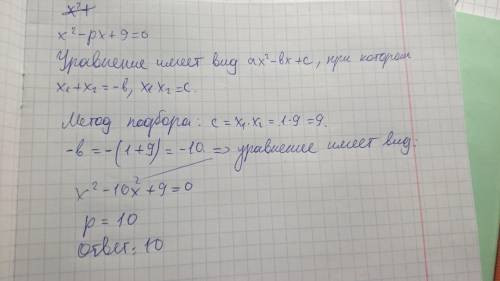 x²+
x²-px+9=0
Уравнение имеет вид ax²-вx+c, при котором
x₁+x₂=-в, x₁x₂=c.
Метод подбора: c=x₁·x₂=1·9=9.
-в=-(1+9)=-10 => уравнение имеет вид:
x²-10x²+9=0
p=10
ответ: 10